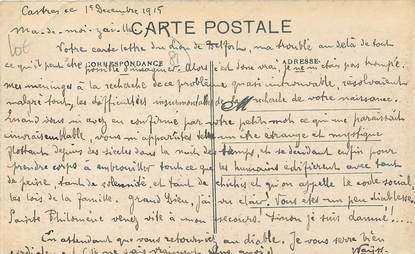 Castres ce 1er Decembre 1915
CARTE POSTALE
Ma-de-moi-zaille
Votre carte lettre du Lion de Belfort, ma trouble au delà de tout
ce qu'il peut être possible d'imaginer. Alors c'est donc vrai, je ne m'étais pas trompé.
CORRESPONDANCE
ADRESSE
mes meninges à la recherche de ce problème quasi introuvable, résolvaient
malgré tout, les difficultés insurmontables de recherche de votre naissance.
Quand vous m'avez en confirmé par votre petit mot ce qui me paraissait
invraisemblable, vous m'apparûtes un être étrange et mystique
flottant depuis des siècles dans la nuit des temps et se decidant enfin pour
prendre corps à embrouiller tout ce que les humains édifièrent avec tout
de peine, tant de solennité, et tant de chichis et qu'on appelle le code social
les lois de la famille. Grand Dieu, j'ai vu clair. Vous êtes un peu diablesse
Sainte Philomène venez vite à mon secours. Sinon je suis damné!....
En attendant que vous retourniez au diable. Je vous serre bien